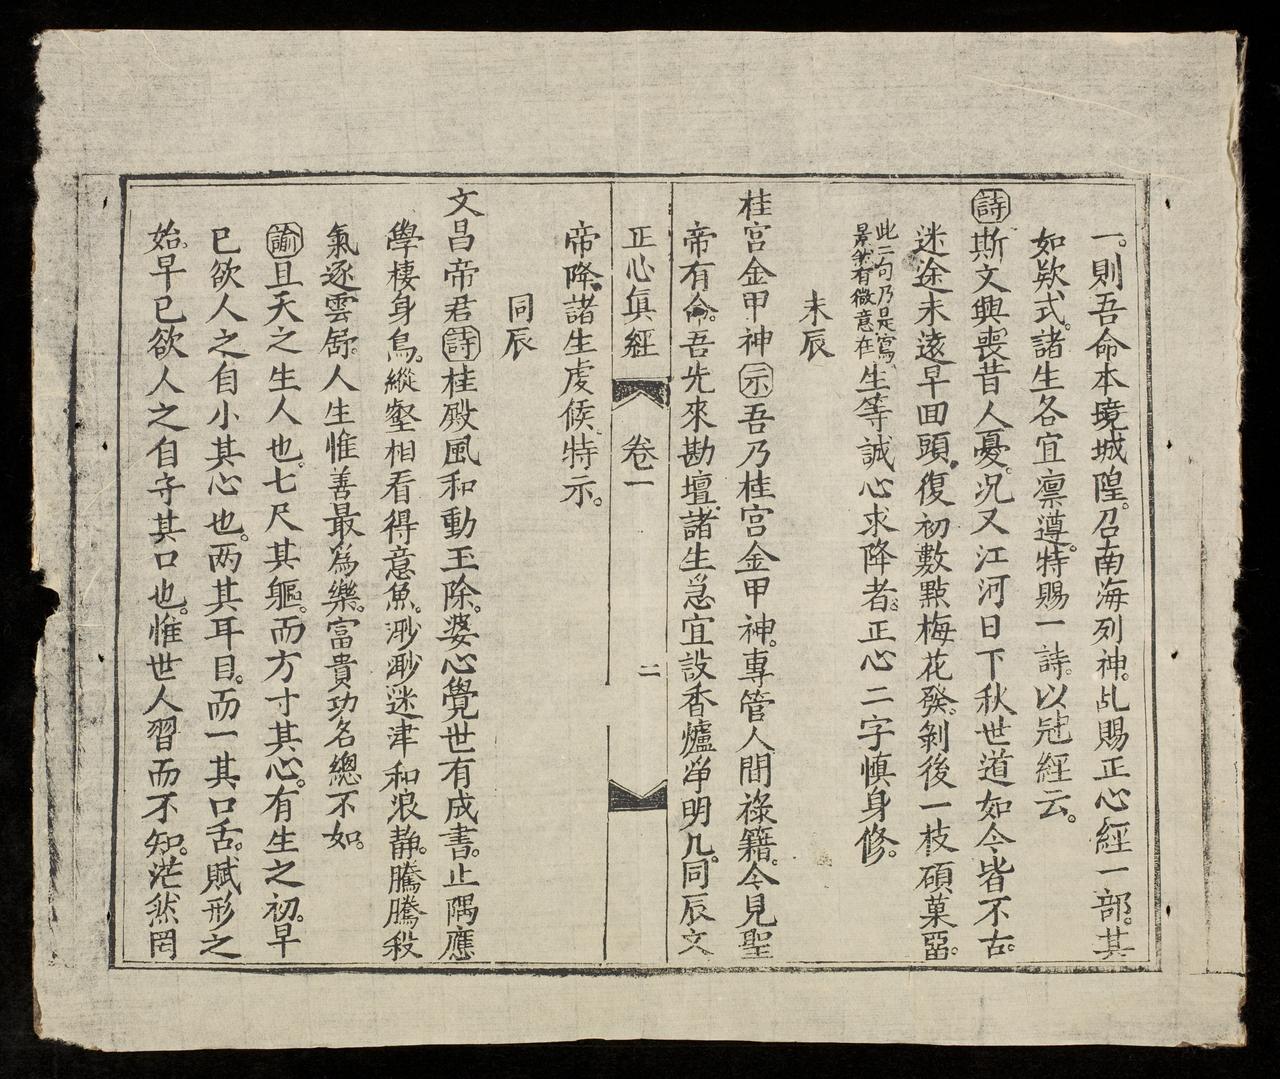 一。則吾命本境城隍。召南海列神。乩賜正心經一部。其
如欵式。諸生各宜凛遵。特賜一詩。以冠經云。
詩斯文興喪昔人憂。况又江河日下秋世道如今皆不古。
迷途未遠早囬頭。復初數點梅花發。剝後一枝碩菓畱。
此二句乃是寫
景然有微意在生等誠心求降者。正心二字慎身修。
未辰
桂宫金甲神示吾乃桂宫金甲神。專管人間祿籍。今見聖
帝有命。吾先來勘壇。諸生急宜設香爐淨明几。同辰文
正心眞經 卷一 二
帝降。諸生虔候。特示。
同辰
文昌帝君詩桂殿風和動玉除。婆心覺世有成書。止隅應
學棲身鳥。縱壑相看得意魚。渺渺迷津和浪静。騰騰殺
氣逐雲舒。人生惟善最為樂。富貴功名總不如。
諭且天之生人也。七尺其軀。而方寸其心。有生之初。早
已欲人之自小其心也。两其耳目。而一其口舌。賦形之
始。早已欲人之自守其口也。惟世人習而不知。茫然罔